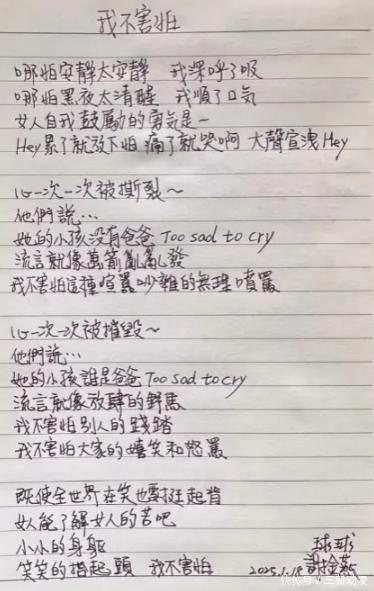 我不害怕
哪怕安靜太安靜 我深呼了吸
哪怕黑夜太清醒 我順了口気
女人自我鼓勵的勇氣是~
Hey 累了就放下怕 痛了就哭啊 大聲宣洩 Hey
心一次一次被撕裂~
他們說…
她的小孩沒有爸爸 Too sad to cry
流言就像萬箭亂亂發
我不害怕這種喧囂吵雜的無理噴罵
心一次一次被摧毀~
他們說…
她的小孩誰是爸爸 Too sad to cry
流言就像放肆的野馬
我不害怕別人的踐踏
我不害怕大家的嬉笑和怒罵
既使全世界在笑也要挺起背
女人能了解女人的苦吧
小小的身軀
笑笑的抬起頭 我不害怕
球球
謝金燕
2025.1.18
快传号/三新动漫